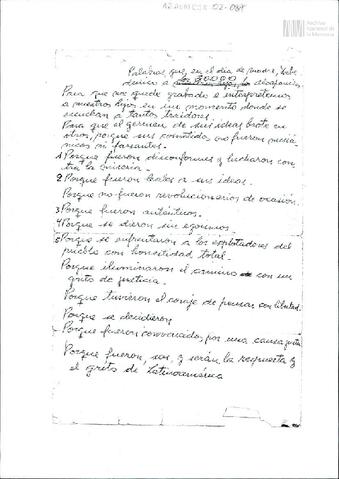 Archivo
Nacional de
la Memoria
Palabras que, en el día de madre, Hebe
a los 30000
Para que nos quede grabado e interpretemos
a nuestros hijos en un momento donde se
escuchan a tantos traidores.
Para que el germen de sus ideas brote en
otros, porque sus no fueron
ni farsantes.
1 Porque fueron disconformes y lucharon con
tra la
2. Porque fueron leales a sus ideas.
Porque no fueron revolucionarios de ocasión.
3 Porque fueron auténticos.
4 Porque se dieron sin egoismos.
5 Porque se enfrentaron a los explotadores del
pueblo con honestidad total.
Porque iluminaron el camino con un
grito de justicia.
Porque tuvieron el coraje de pensar con libertad.
Porque se decidieron
Porque fueron convocados, por una causa justa
Porque fueron, son, y serán la respuesta y
el grito de Latinoamérica